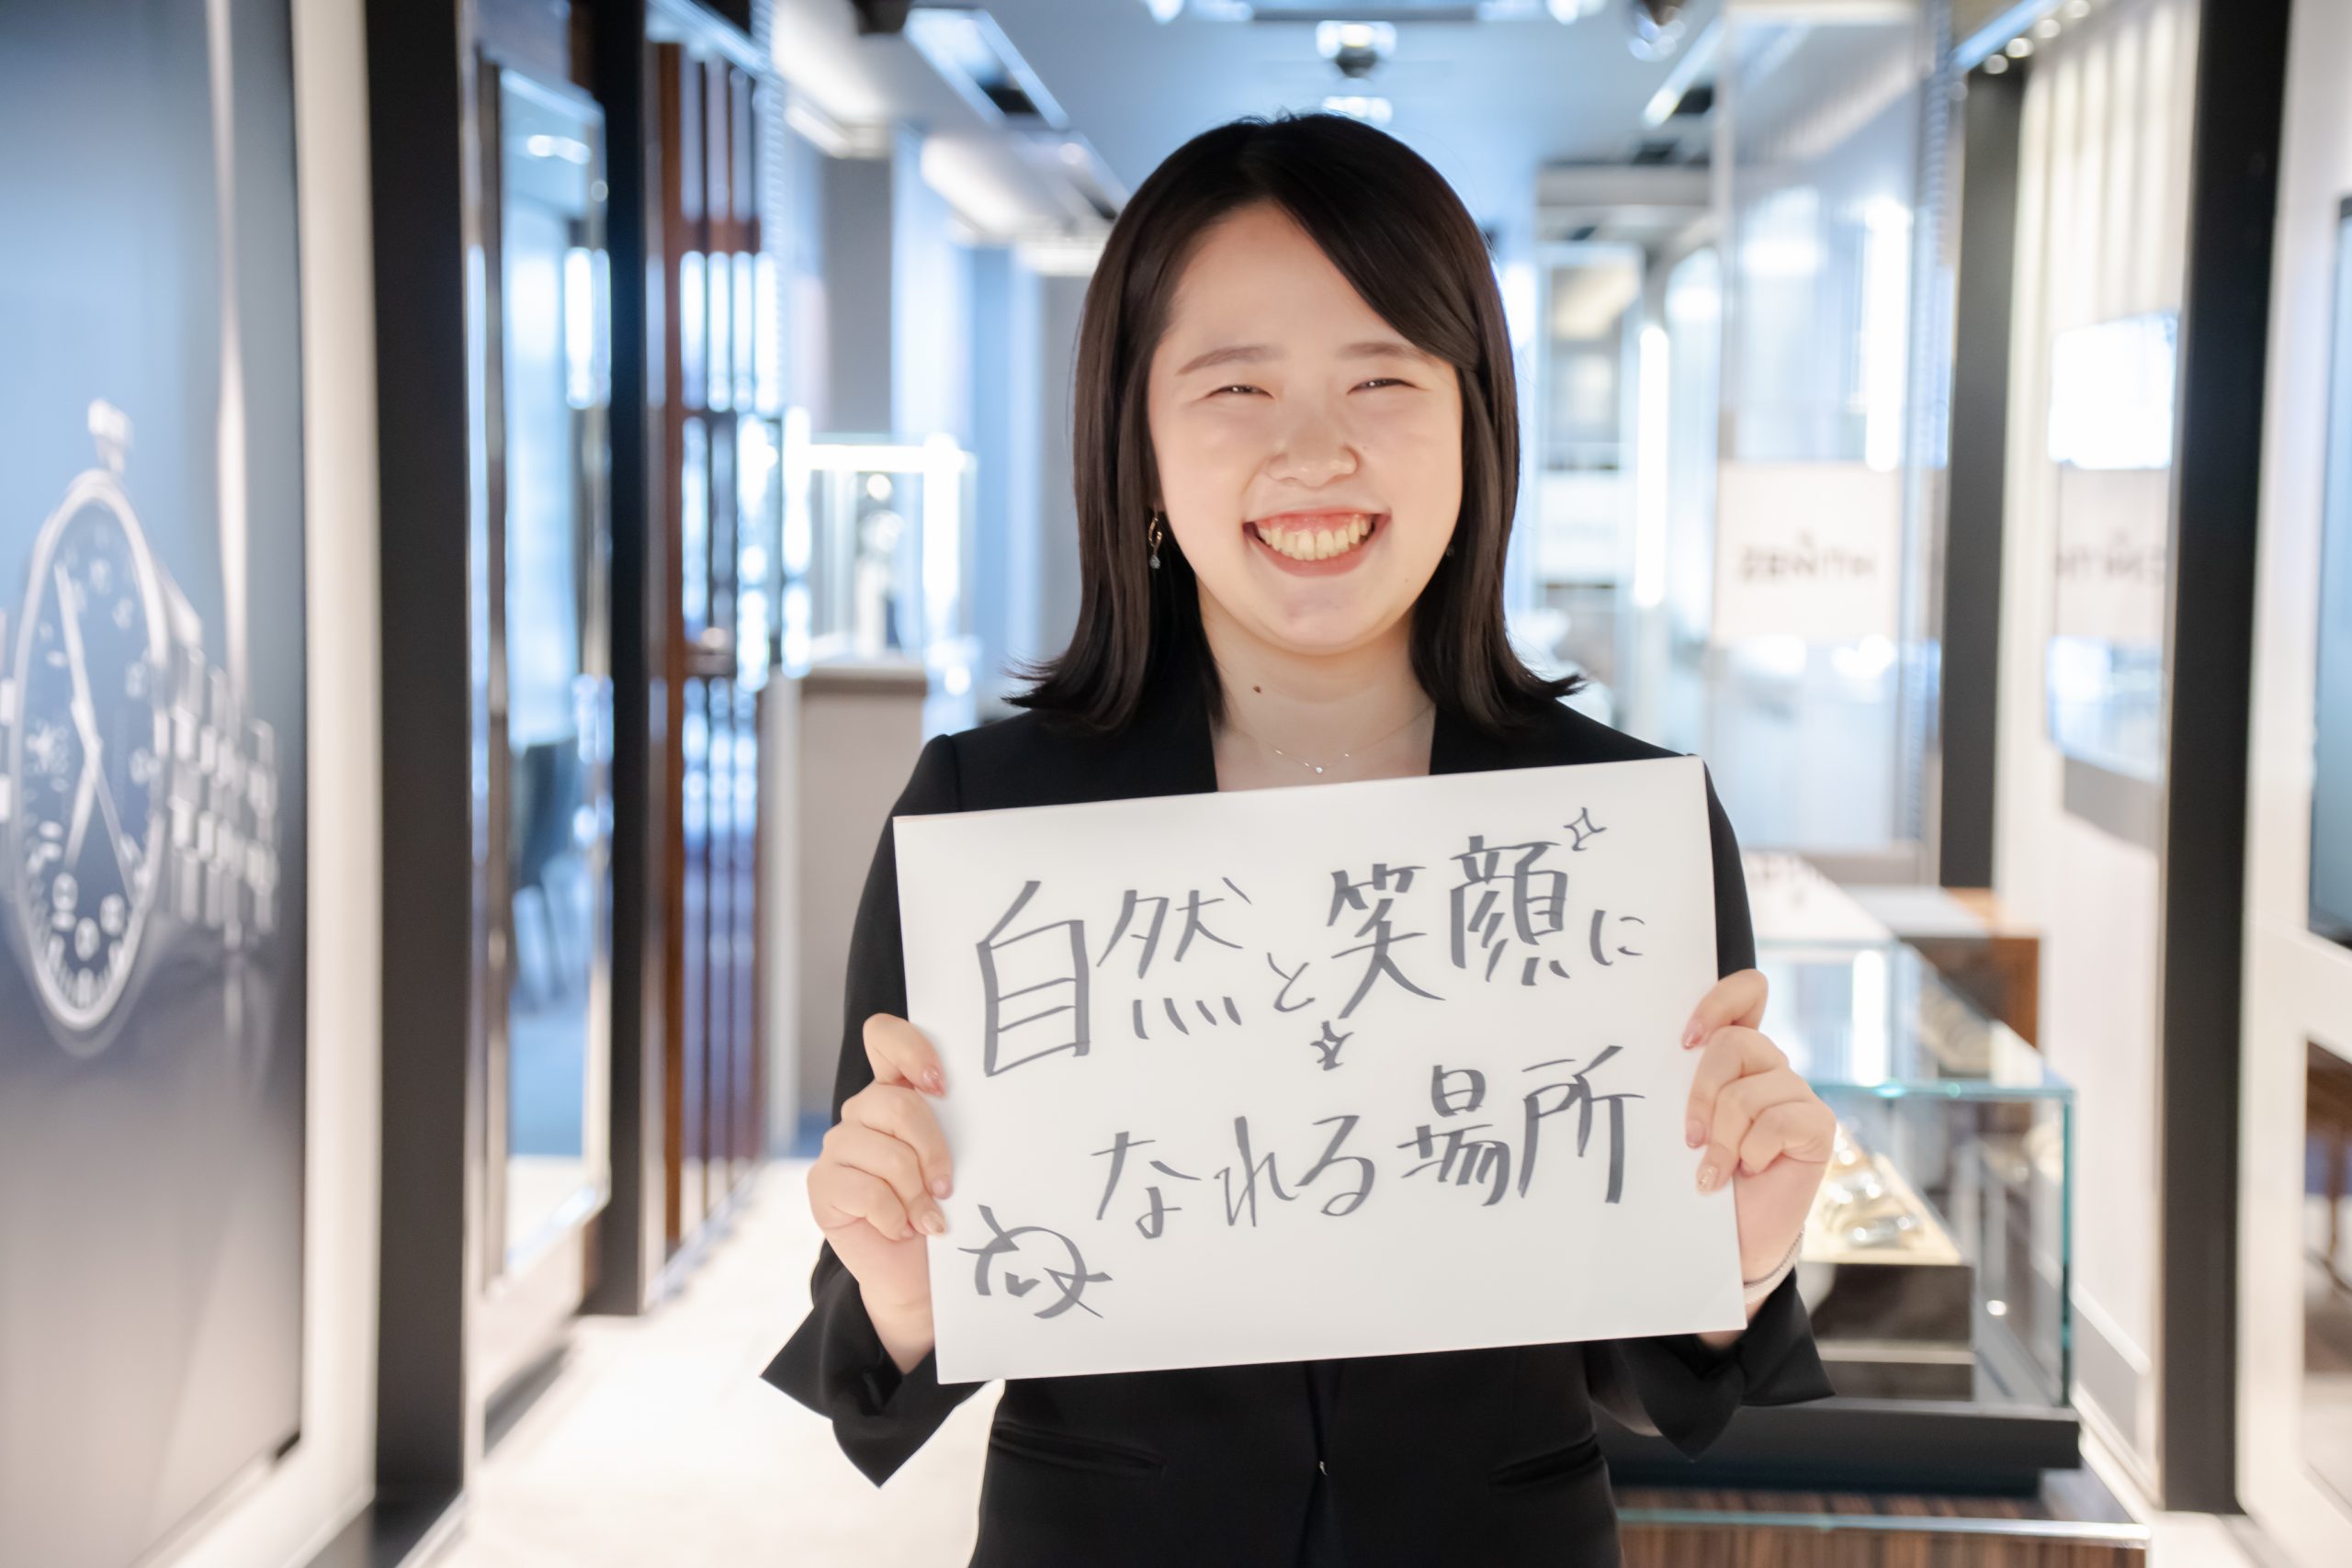 自然と笑顔に
なれる場所
ZENITH